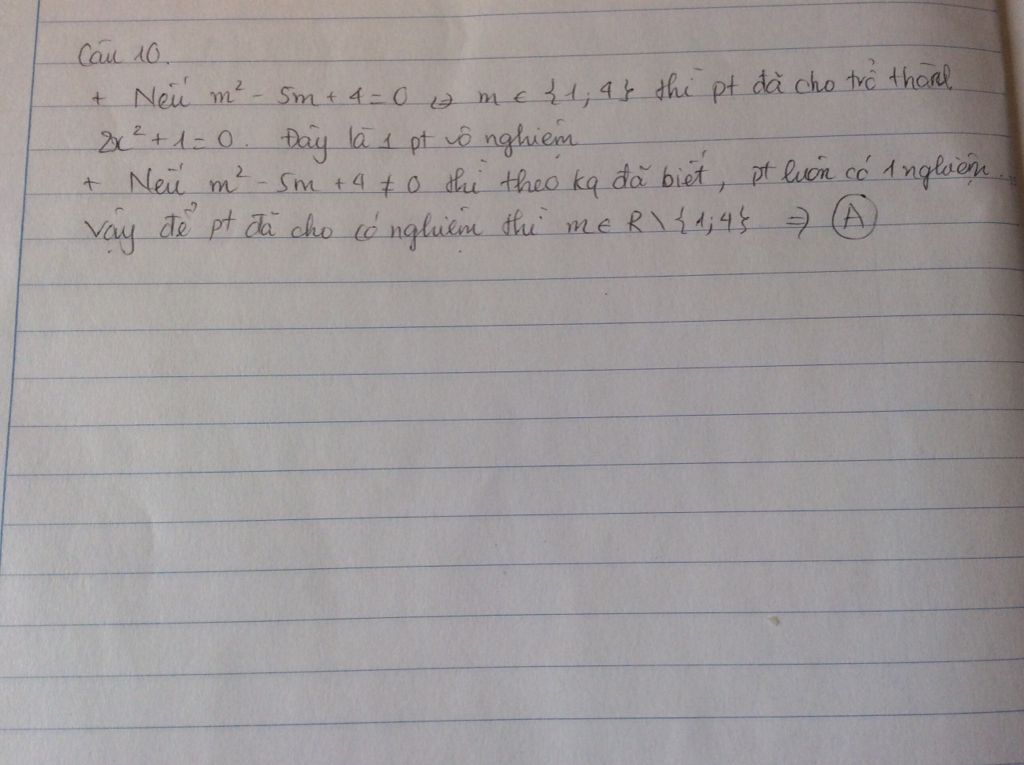 Câu 10.
+ Nếu m² - 5m + 4 = 0 ⇔ m ∈ {1; 4} thì pt đã cho trở thành
2x² + 1 = 0. Đây là 1 pt vô nghiệm
+ Nếu m² - 5m + 4 ≠ 0 thì theo kq đã biết, pt luôn có 1 nghiệm.
Vậy để pt đã cho có nghiệm thì m ∈ R \ {1; 4} ⇒ A